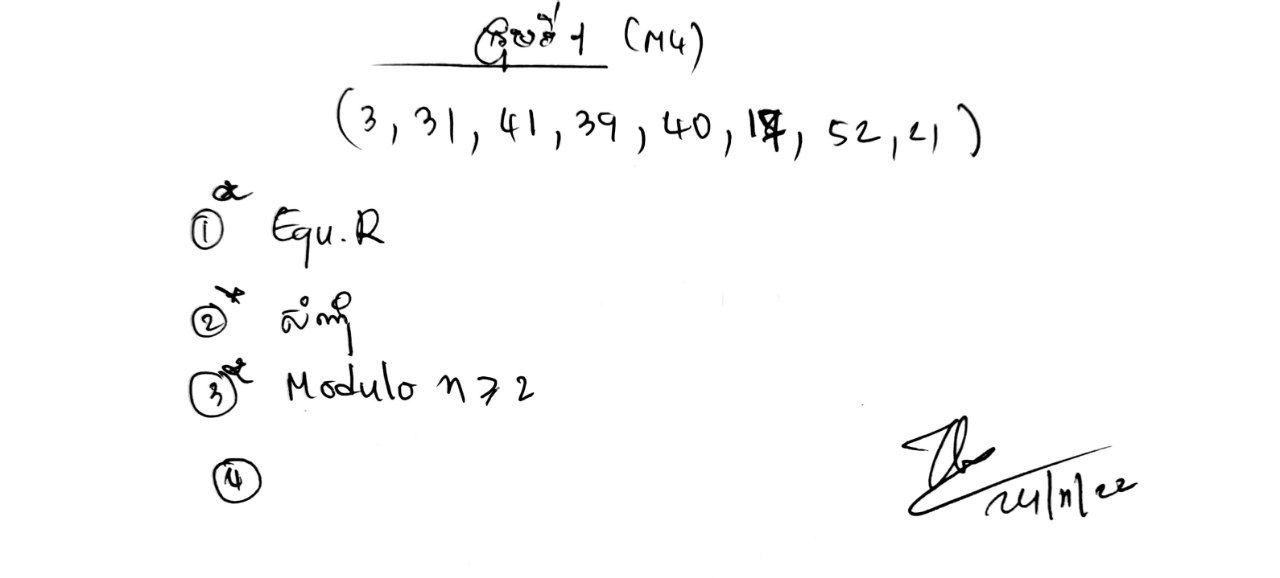 ក្រុមទី 1 (M4)
(3, 31, 41, 39, 40, 17, 52, 21)
① Equ.R
② សំណុំ
③ Modulo n ⩾ 2
④